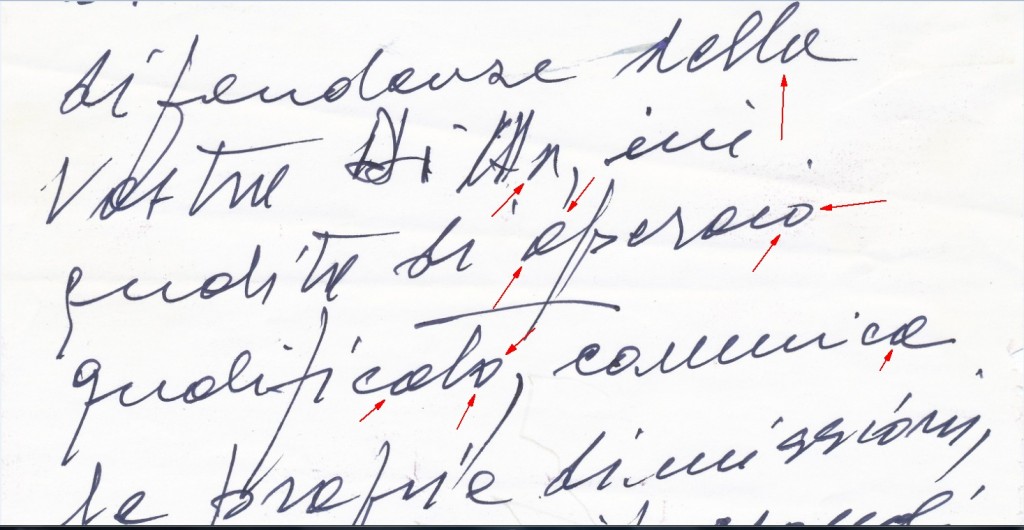 dipendenze della
Vostre Ditta, in
qualità di operaio
qualificato, comunica
le proprie dimissioni,